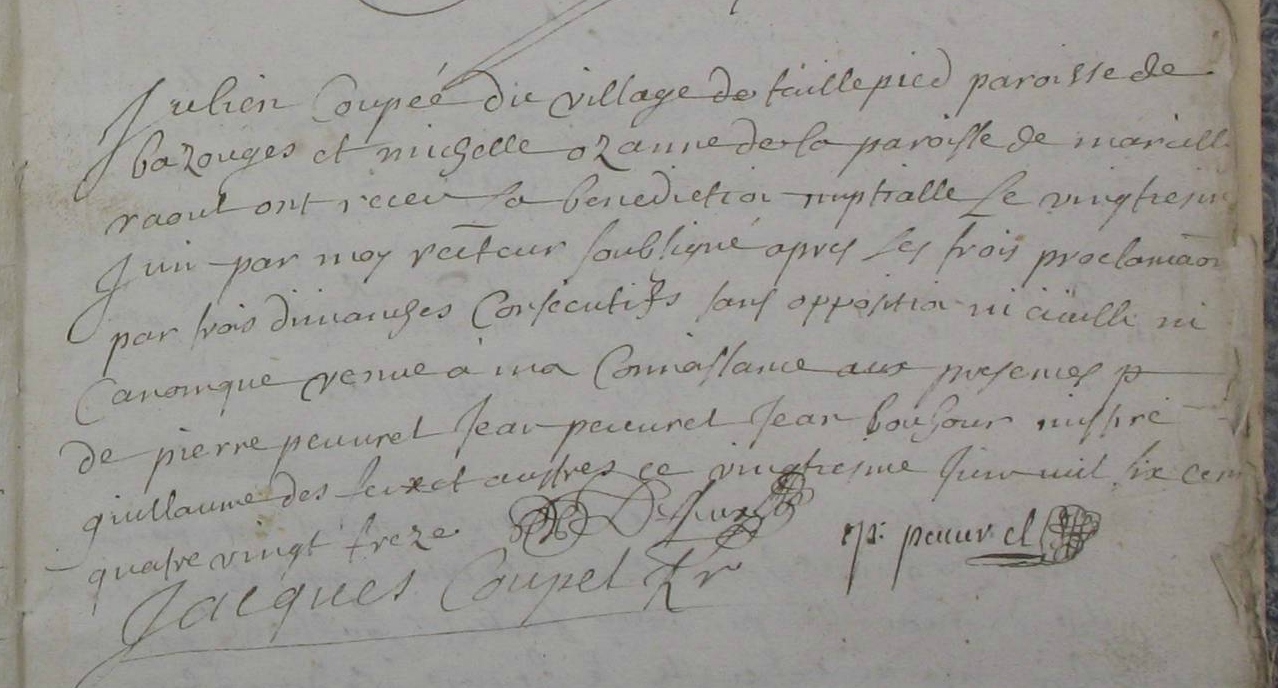 Julien Coupée du village de taillepied paroisse de
bazouges et michelle ozanne de la paroisse de marcille
raoul ont receu la benediction nuptialle Le vingtiesme
Juin par moy recteur soubsigné apres Les trois proclamaon
par trois dimanches Consecutifs sans opposition ni civille ni
Canonique venue à ma Connoissance aux presences
de pierre peuvrel Jean peuvrel Jean bonjour missire
guillaume des feux et autres ce vingtiesme Juin mil six cent
quatre vingt treze
p: peuvrel
Jacques Coupel